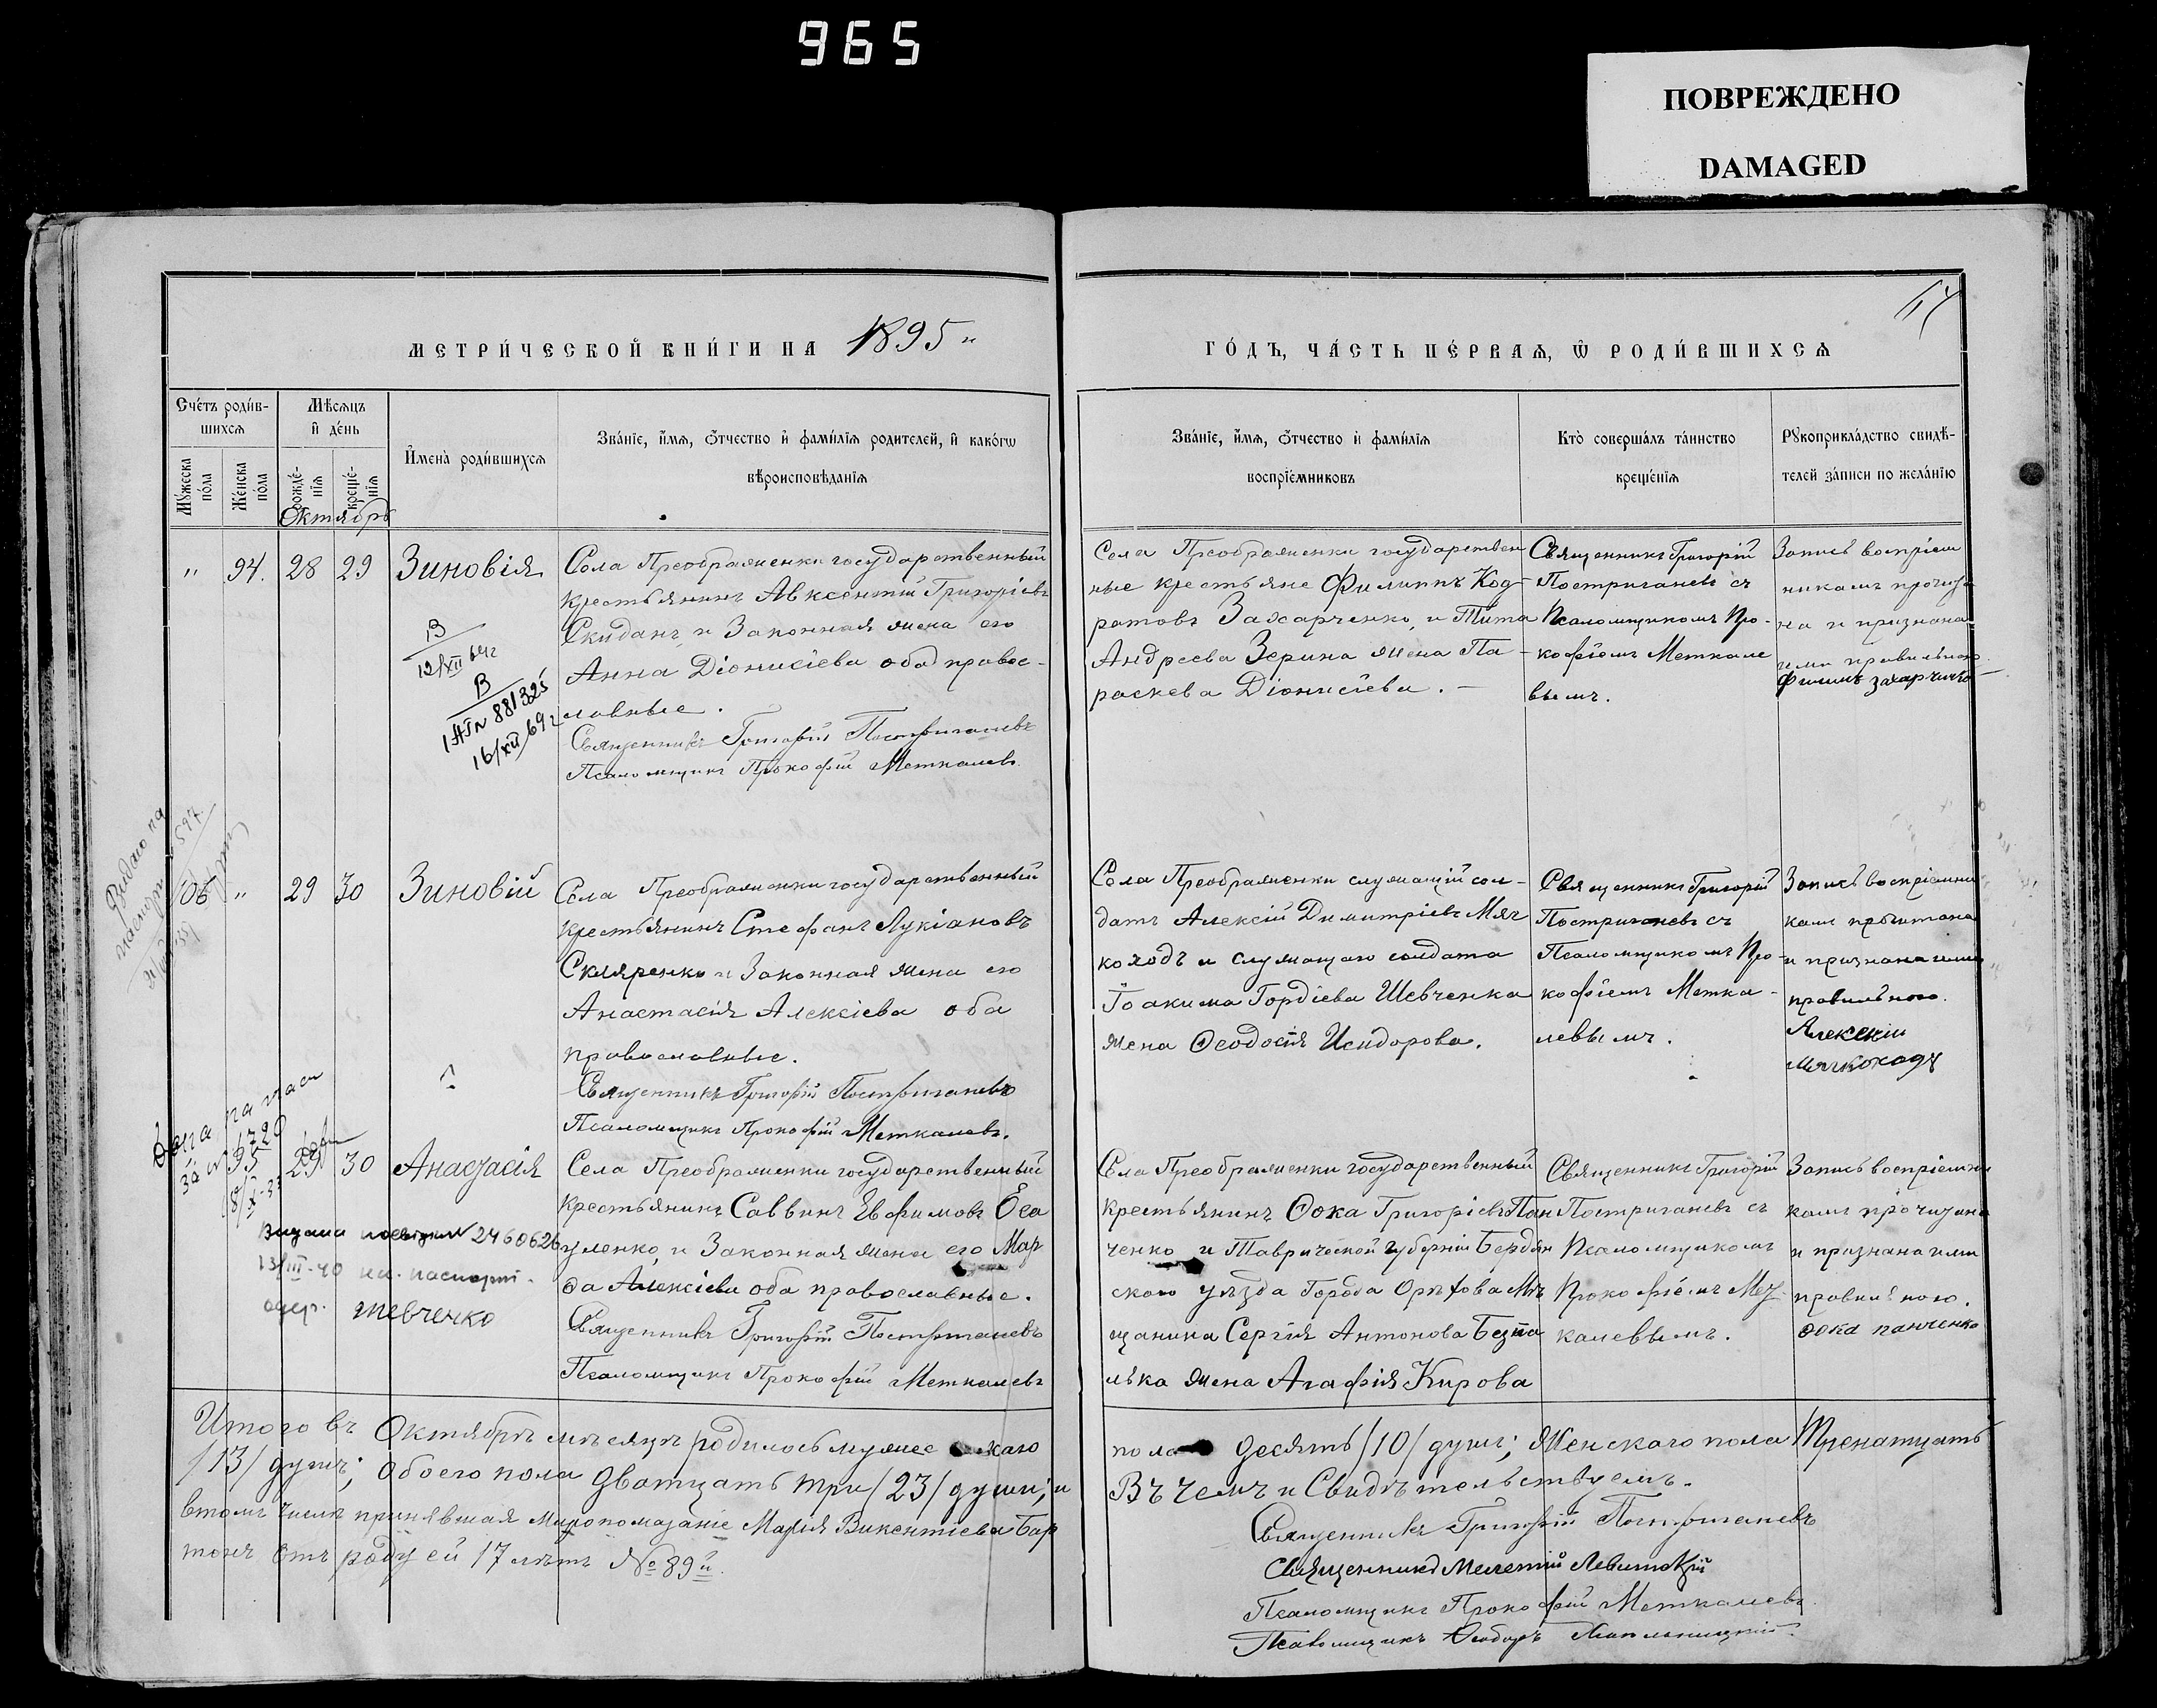 965
ПОВРЕЖДЕНО
DAMAGED
МЕТРИ́ЧЕСКОЙ КНИ́ГИ НА 1895
ГО́ДЪ, ЧА́СТЬ ПЕ́РВАѦ, Ѿ РОДИ́ВШИХСѦ
Сче́тъ роди́в-
шихсѧ
Мѣсѧцъ
и҆ де́нь
И҆мена̀ роди́вшихсѧ
Зва́нїе, и҆́мѧ, ѻ҆́тчество и҆ фами́лїѧ родителей, и҆ како́гѡ
вѣроисповѣданїѧ
Мꙋ́жеска
по́ла
Же́нска
по́ла
рожде́-
нїѧ
креще́-
нїѧ
Октябрь
Зва́нїе, и҆́мѧ, ѻ҆́тчество и҆ фами́лїѧ
воспрїе́мниковъ
Кто̀ соверша́лъ та́инство
креще́нїѧ
Рꙋкоприкла́дство свидѣ-
телей за́писи по жела́нїю
" 94. 28 29 Зиновія
Села Преображенки государственный
крестьянинъ Авксентій Григоріевъ
Скиданъ и Законная жена его
Анна Діонисіева оба правос-
лавные.
Священникъ Григорій Постриганевъ
Псаломщикъ Прокофій Меткалевъ.
В
12/XII 64г
В
IАП № 881325
16/XII 69г
Села Преображенки государствен
ные крестьяне Филиппъ Код-
ратовъ Захарченко, и Тита
Андреева Зерина жена Па-
раскева Діонисіева.
Священникъ Григорій
Постриганевъ съ
Псаломщикомъ Про-
кофіемъ Меткале
вымъ.
Запись воспріем
никамъ прочита
на и признана
ими правильною.
Филипъ Захарчинко
105 " 29 30 Зиновій
Села Преображенки государственный
крестьянинъ Стефанъ Лукіановъ
Скляренко и Законная жена его
Анастасія Алексіева оба
православные.
Священникъ Григорій Постриганевъ
Псаломщикъ Прокофій Меткалевъ.
Села Преображенки служащій сол-
датъ Алексій Димитріевъ Мяг
коходъ и служащаго солдата
Іоакима Гордіева Шевченка
жена Ѳеодосія Исидорова.
Священникъ Григорій
Постриганевъ съ
Псаломщикомъ Про-
кофіемъ Метка-
левымъ.
Запись воспріемни
камъ прочитана
и признана ими
правильною.
Алексій
Мягкоходъ
95 29 30 Анастасія
Села Преображенки государственный
крестьянинъ Саввинъ Евфимовъ Еса
уленко, и Законная жена его Мар
ѳа Алексіева оба православные.
Священникъ Григорій Постриганевъ
Псаломщикъ Прокофій Меткалевъ
№ 2460626
13/III-40 на паспорт.
Шевченко
Села Преображенки государственный
крестьянинъ Ѳока Григоріевъ Пан
ченко и Таврической губерніи Бердян
скаго уѣзда Города Орѣхова Мѣ
щанина Сергія Антонова Безпа
лька жена Агафія Кирова
Священникъ Григорій
Постриганевъ съ
Псаломщикомъ
Прокофіемъ Мет
калевымъ.
Запись воспріемни
камъ прочитана
и признана ими
правильною.
Ѳока Панченко
Итого въ Октябрѣ мѣсяцѣ родилось мужес каго
пола десять /10/ душъ; Женскаго пола Тренатцать
/13/ душъ; обоего пола дватцать три /23/ души; и
Въ чемъ и Свидѣтельствуемъ.
втомъ числѣ принявшая Миропомазаніе Марія Викентіева Бар
тонъ отъ роду ей 17 лѣтъ № 89й.
Священникъ Григорій Постриганевъ
Священникъ Мелетій Левитскій
Псаломщикъ Прокофій Меткалевъ
Псаломщикъ